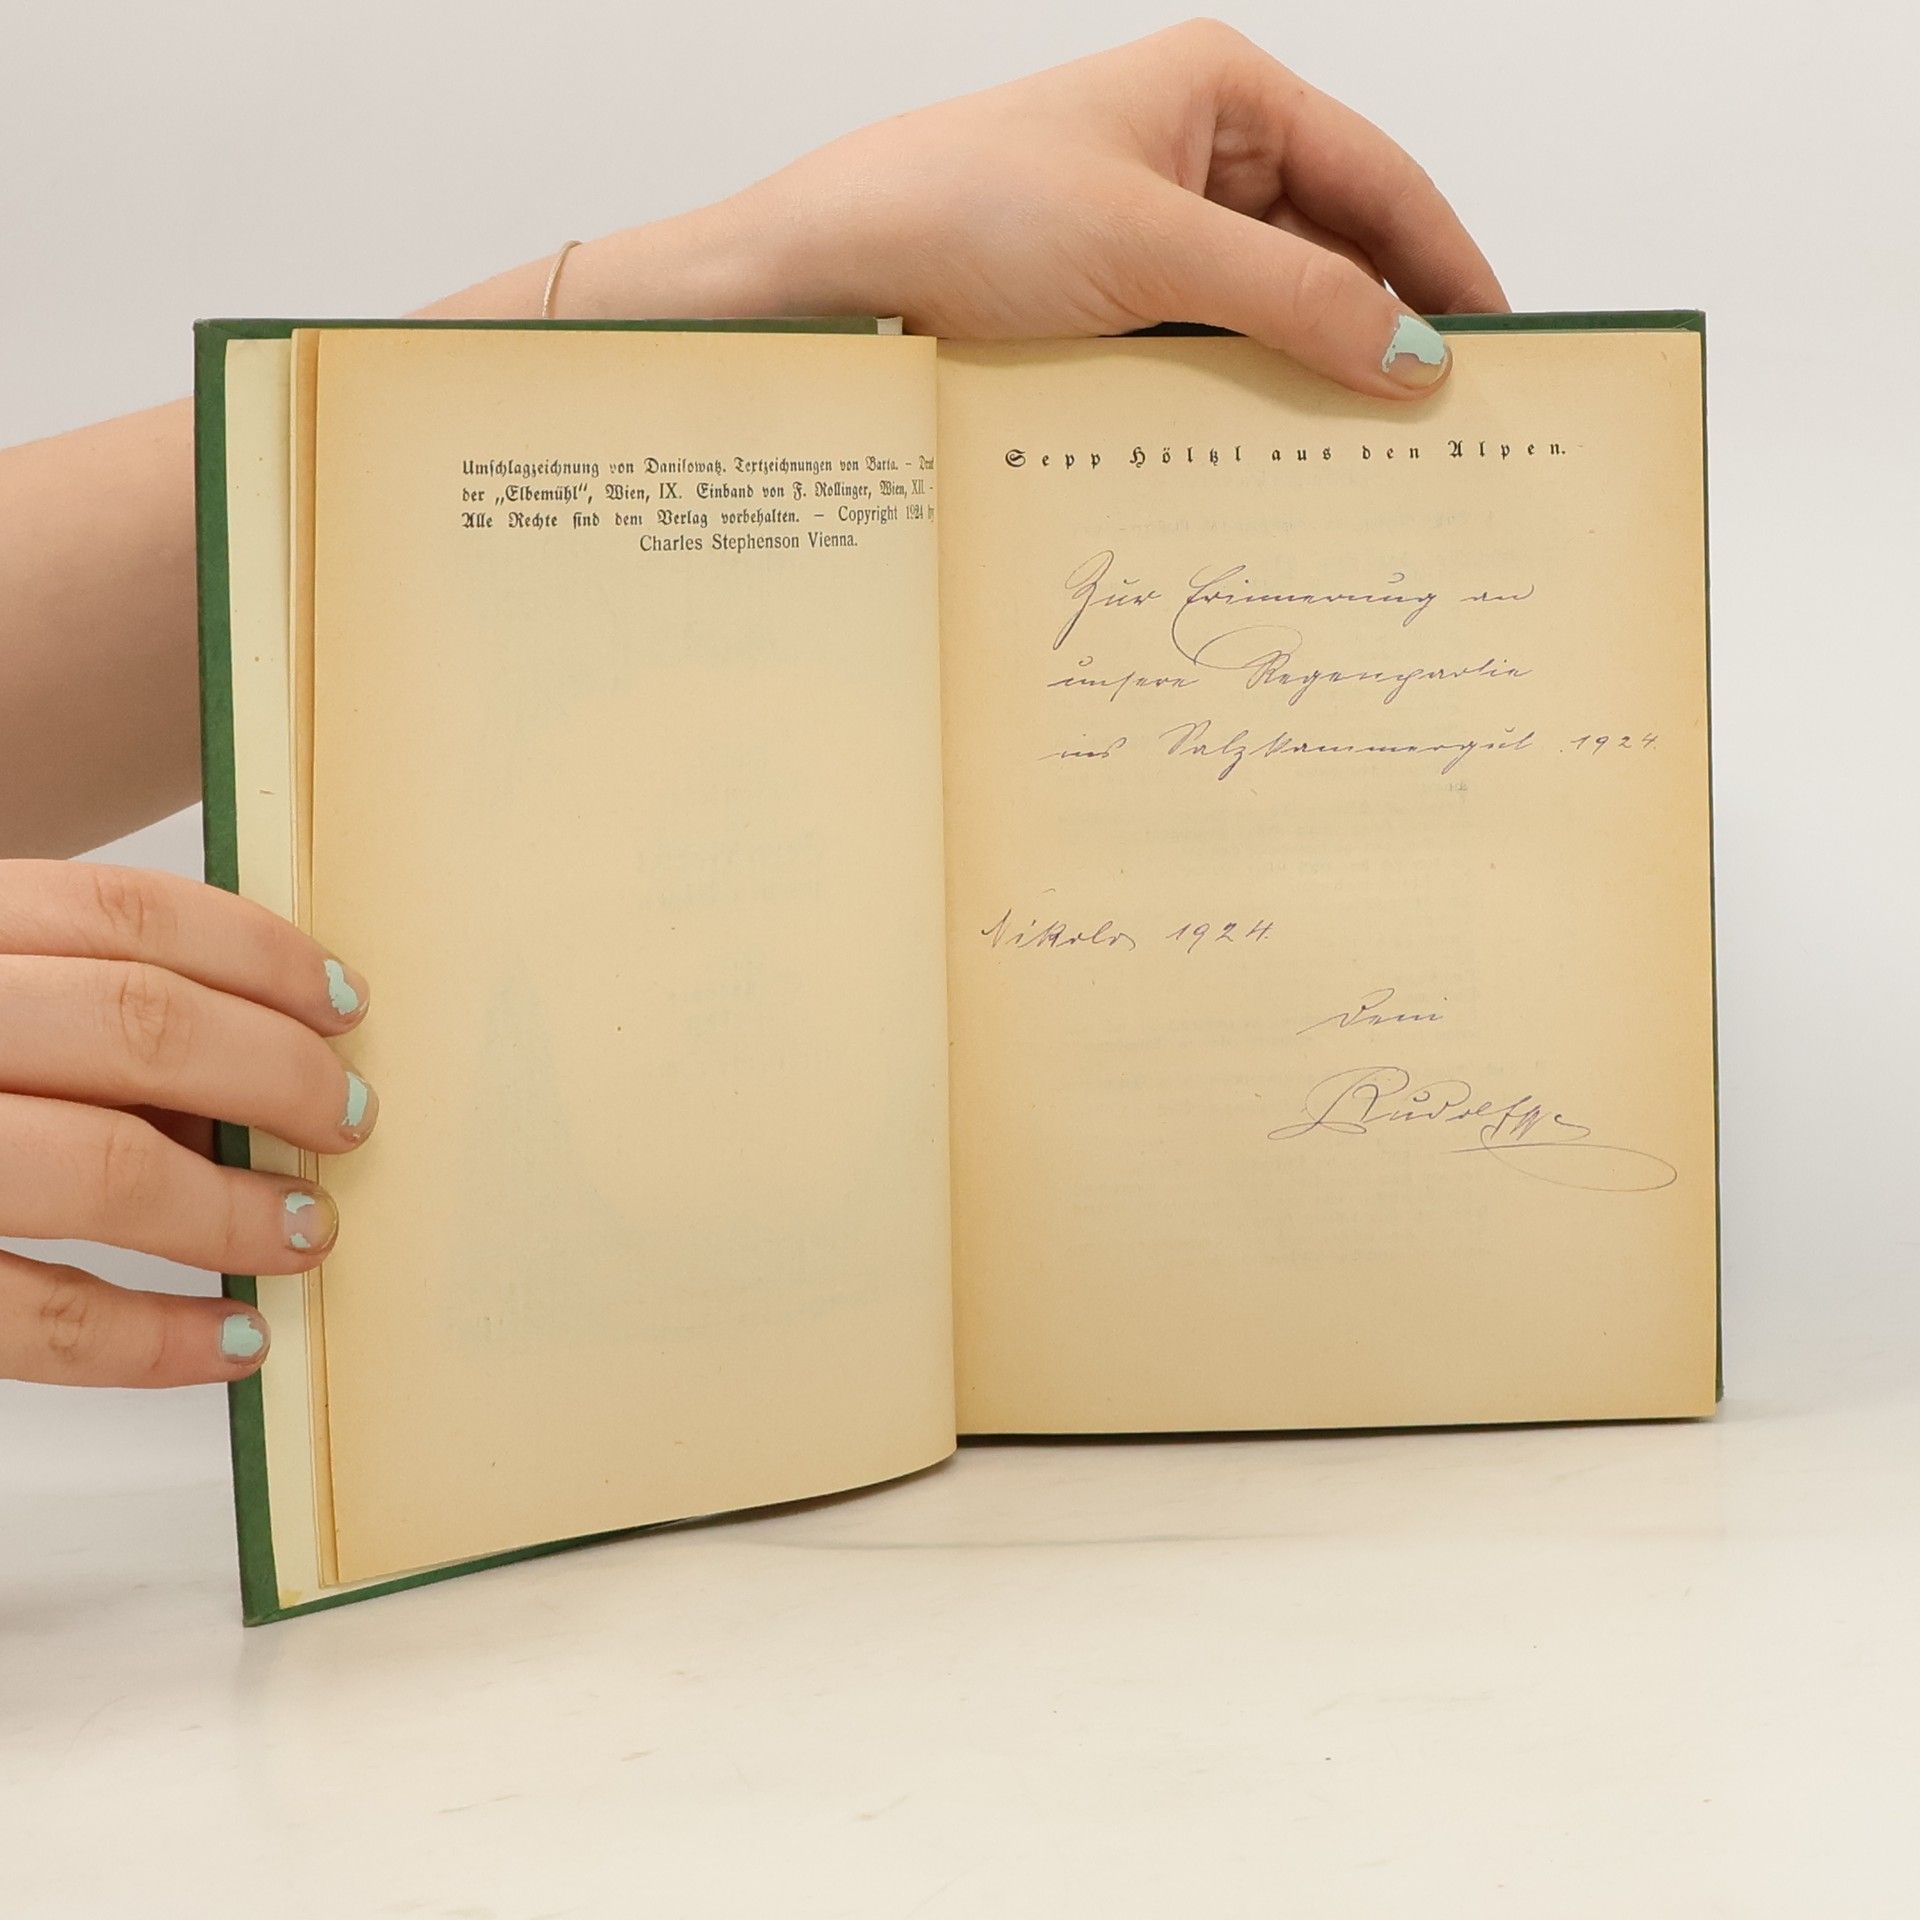 Umschlagzeichnung von Danilowatz. Textzeichnungen von Barta. – Druck
der „Elbemühl“, Wien, IX. Einband von F. Rollinger, Wien, XII. –
Alle Rechte sind dem Verlag vorbehalten. – Copyright 1924 by
Charles Stephenson Vienna.
Sepp Höltzl aus den Alpen.
Zur Erinnerung an
unsere Regenpartie
ins Salzkammergut 1924.
Nikolo 1924.
Dein
Rudolf